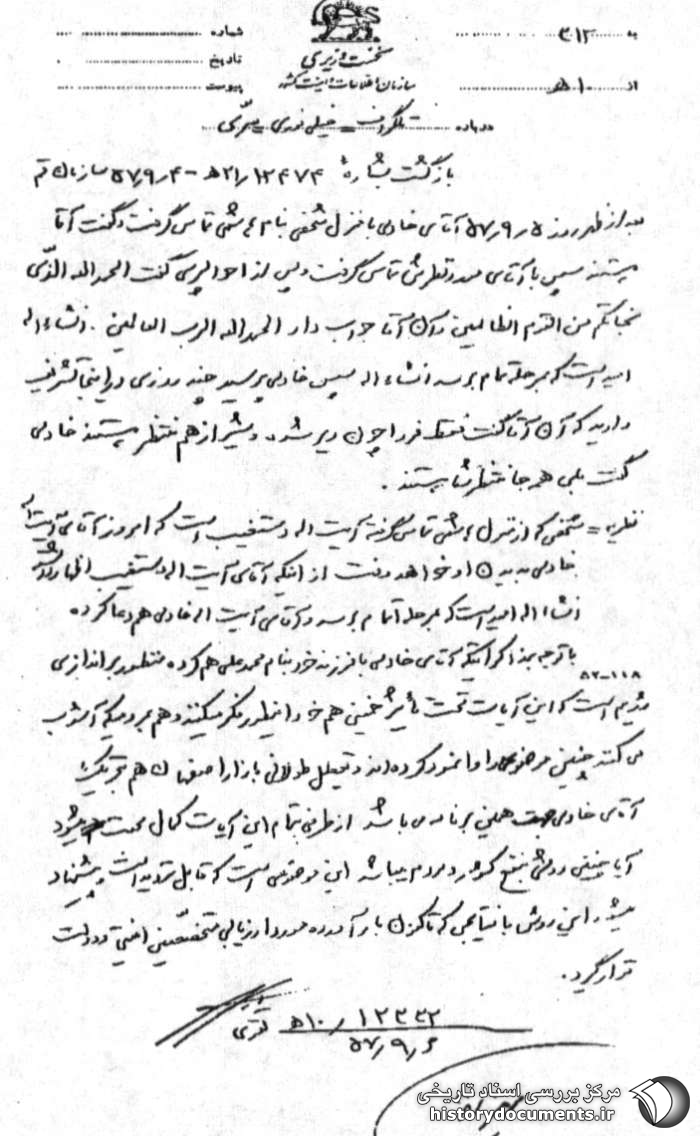 به ۳۱۲ شماره
نخست وزیری
تاریخ
سازمان اطلاعات و امنیت کشور
از ۱۰ هـ پیوست
درباره تلگراف = خیلی فوری = سری
بازگشت بشماره ۲۱/۱۲۴۷۴ هـ - ۵۷/۹/۴ سازمان قم
بعد از ظهر روز ۵/۹/۵۷ آقای خادمی با منزل شخصی بنام هاشمی تماس گرفت و گفت آقا
هستند سپس با آقای مورد نظرش تماس گرفت و پس از احوالپرسی گفت الحمد الله الذی
نجاکم من القوم الظالمین و آن آقا جواب داد الحمد الله الرب العالمین . انشاء اله
امید است که بمرحله تمام برسد انشاء اله سپس خادمی پرسید چند روزی در اینجا تشریف
دارید که آن آقا گفت فقط فردا چون دیر شده و شیراز هم منتظر هستند خادمی
گفت بلی همه جا منتظر شما هستند .
نظریه = شخصی که از منزل هاشمی تماس گرفته آیت اله دستغیب است که امروز آقای آیت اله
خادمی به دیدن او خواهد رفت از اینکه آقای آیت اله دستغیب اظهار داشته
انشاء اله امید است که بمرحله اتمام برسد و آقای آیت اله خادمی هم دعا کرده
با توجه بمذاکراتیکه آقای خادمی با فرزند خود بنام محمد علی هم کرده منظور براندازی
۱۱۸-۵۲
رژیم است که این آیات تحت تأثیر خمینی هم خود اینطور فکر میکنند و هم مردمیکه آشوب
می کنند چنین موضوعی را وانمود کرده اند و تعطیل طولانی بازار اصفهان هم بتحریک
آقای خادمی همین برنامه می باشد از طرفی بتمام این آیات کمال محبت میشود
آیا چنین روشی بنفع کشور و مردم میباشد این موضوعی است که قابل تردید است پیشنهاد
میشود این روش با نتایجی که تاکنون بار آورده مورد ارزیابی متخصصین امنیتی و دولت
قرار گیرد .
۱۰/۱۲۳۳۲ هـ
۵۷/۹/۶
تقوی
مرکز بررسی اسناد تاریخی
historydocuments.ir